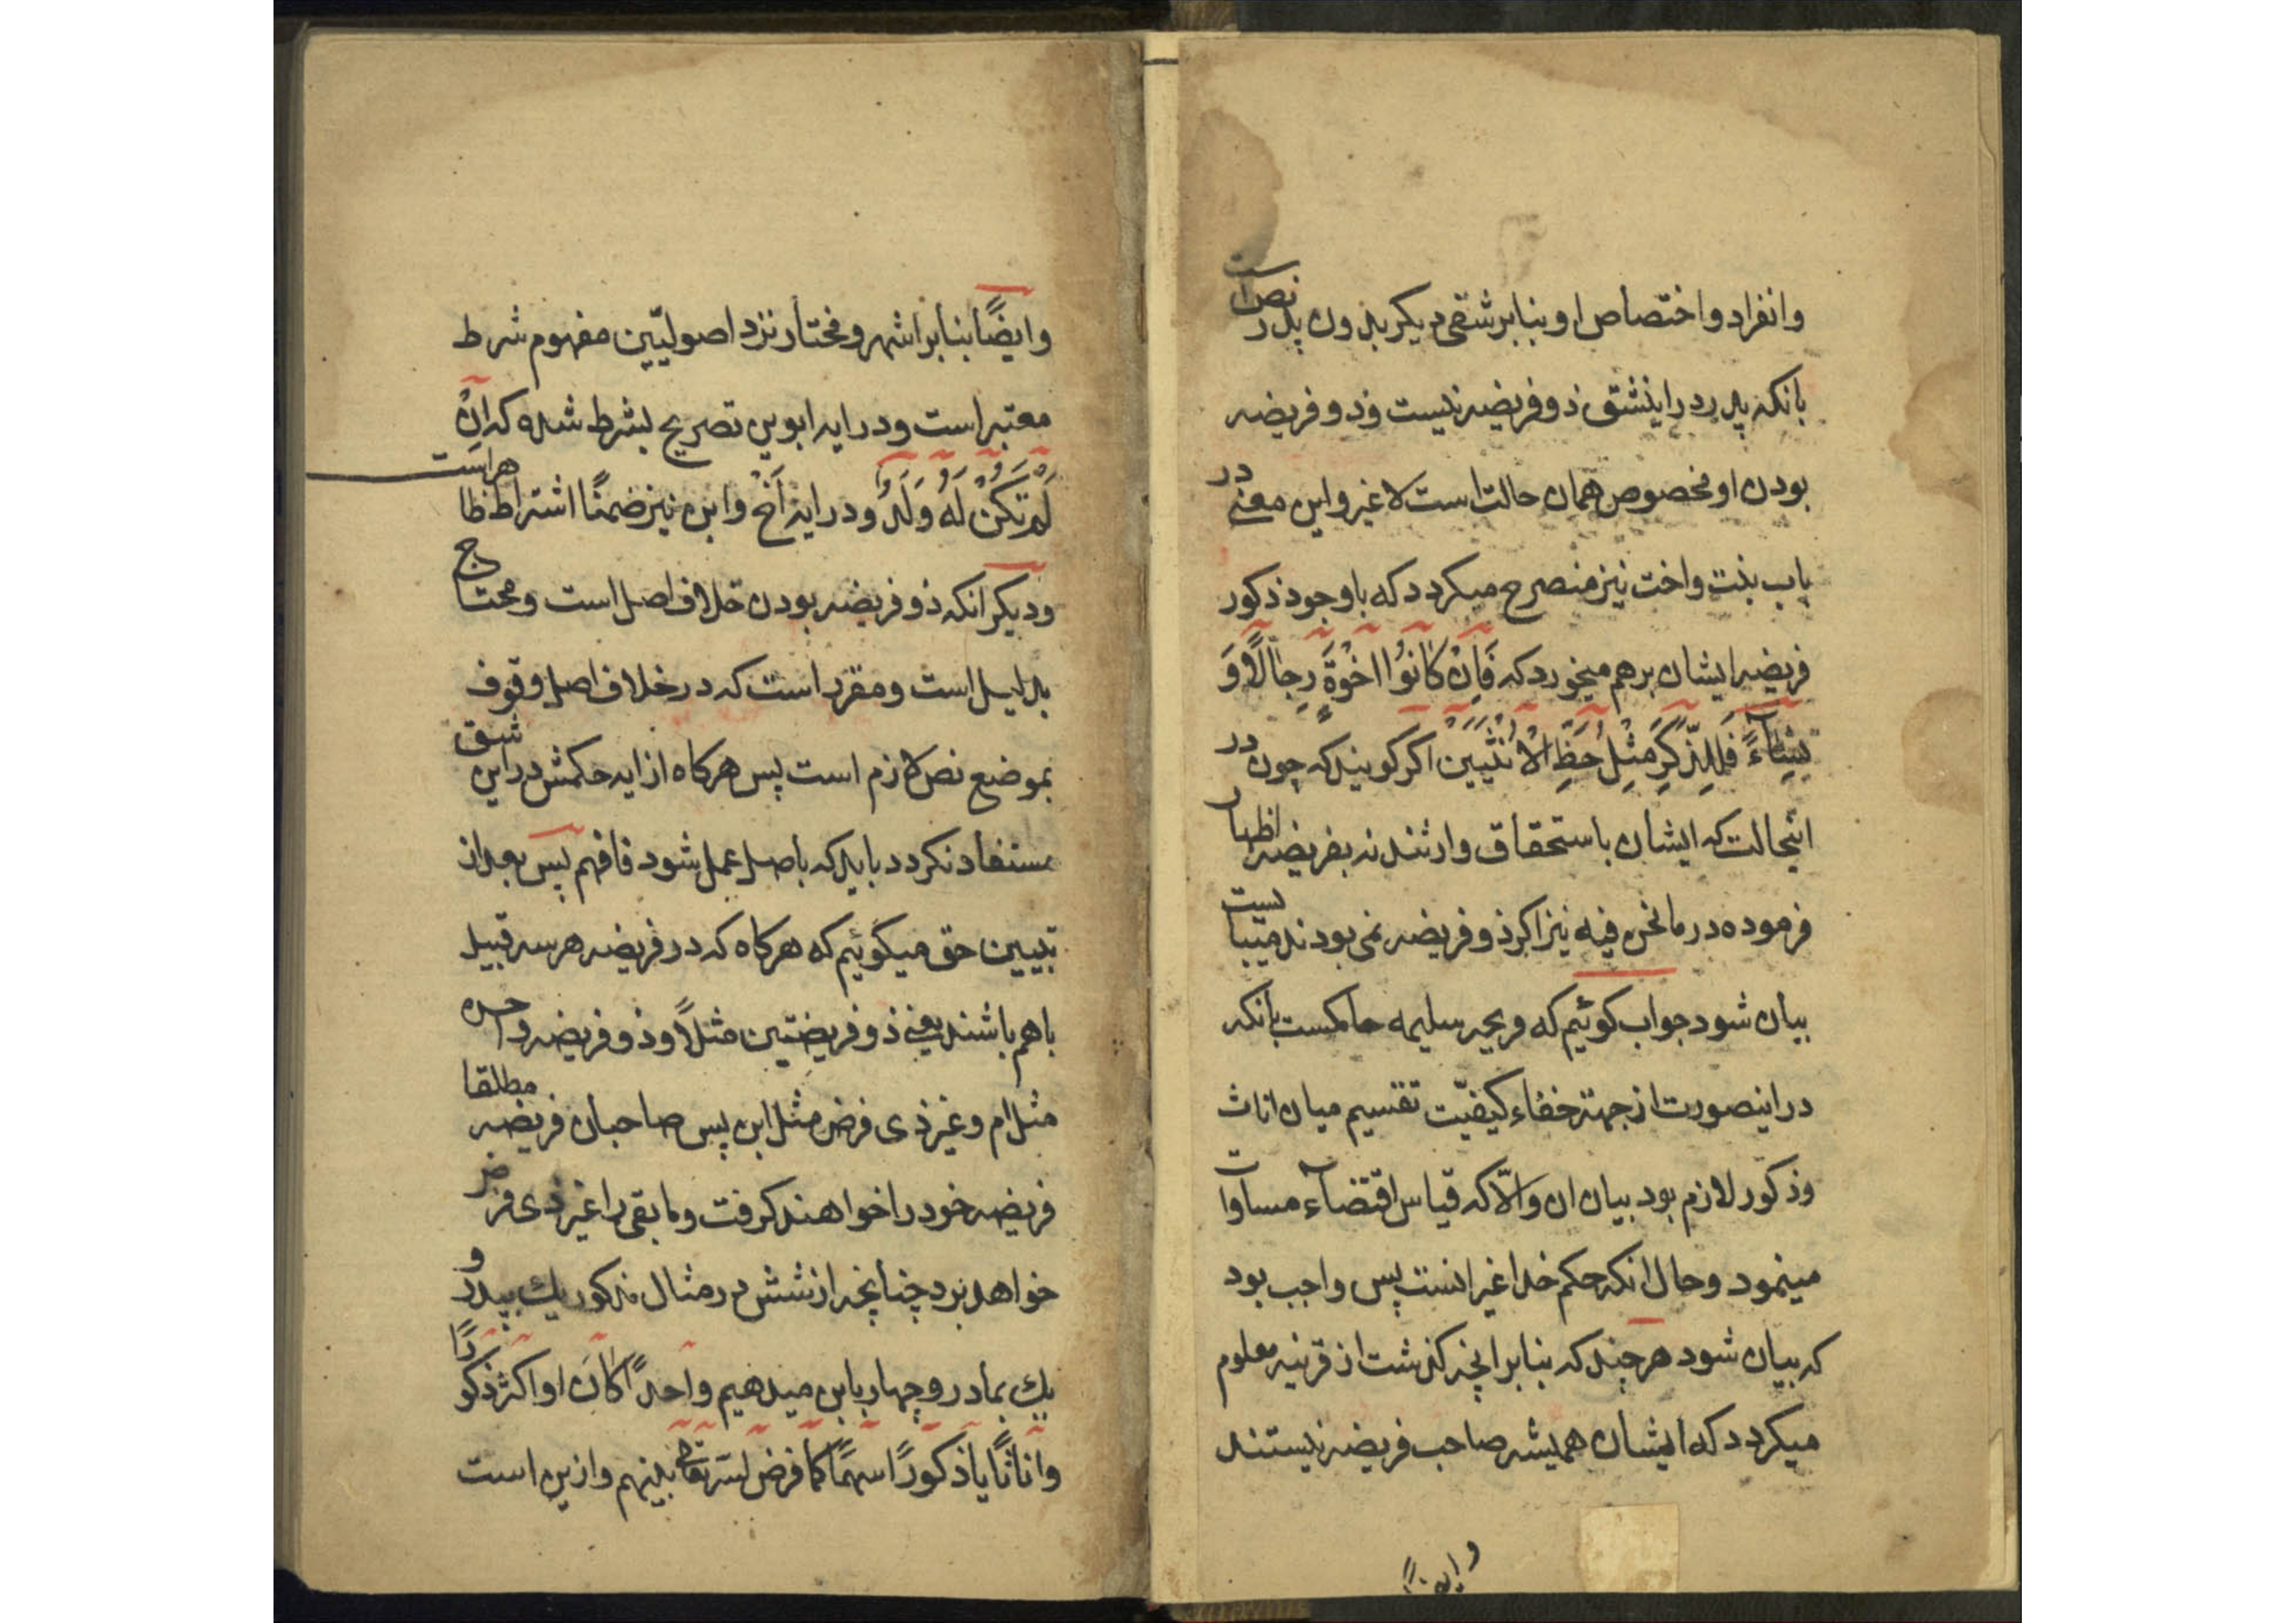 وانفراد واختصاص او بنابر شقی دیکر بدون پدر نص است
بانکه پدر در اینشق ذو فریضه نیست و ذو فریضه
بودن او مخصوص همان حالت است لا غیر و این معنی در
باب بنت واخت نیز منصرح میکردد که باوجود ذکور
فریضه ایشان برهم میخورد که فَاِنْ كانُوْا اخْوَةً رِجالًا وَ
نِسٰاءً فَلِلذَّكَرِ مِثْلُ حَظِّ الْاُنْثَيَيْنِ اکر کویند که چون در
اینحالت که ایشان باستحقاق وارثند نه بفریضه اظهار
فرموده در مانحن فیه نیز اکر ذو فریضه نمی بودند میبایست
بیان شود جواب کوئیم که قریحه سلیمه حاکمست بانکه
در اینصورت از جهت خفاء کیفیّت تقسیم میان اناث
وذکور لازم بود بیان ان والّا که قیاس اقتضاء مساوات
مینمود وحال انکه حکم خدا غیر انست پس واجب بود
که بیان شود هرچند که بنابر انچه کذشت از قرینه معلوم
میکردد که ایشان همیشه صاحب فریضه نیستند
وایضًا
وایضًا بنابر اشهر ومختار نزد اصولیّین مفهوم شرط
معتبر است ودر ایه ابوین تصریح بشرط شده که اِنْ
لَمْ تَكُنْ لَهُ وَلَدٌ ودر ایه اَخْ وابن نیز ضمنًا اشتراط ظاهر است
ودیکر انکه ذو فریضه بودن خلاف اصل است ومحتاج
بدلیل است ومقرر است که در خلاف اصل وقوف
بموضع نص لازم است پس هرکاه از ایه حکمش در این شق
مستفاد نکردد باید که باصل عمل شود فافهم پس بعد از
تبیین حق میکوئیم که هرکاه که در فریضه هر سه قبیل
باهم باشند یعنی ذو فریضتین مثلًا وذو فریضه واحده
مثل ام وغیر ذی فرض مثل ابن پس صاحبان فریضه مطلقا
فریضه خود را خواهند کرفت وما بقی را غیر ذی فرض
خواهد برد چنانچه از شش در مثال مذکور یك بپدر و
یك بمادر وچهار بابن میدهیم واحدًا کانَ او اکثر ذکورًا
واناثًا یا ذکورًا اسهمًا کما فرض لتریقهم بینهم وازین است